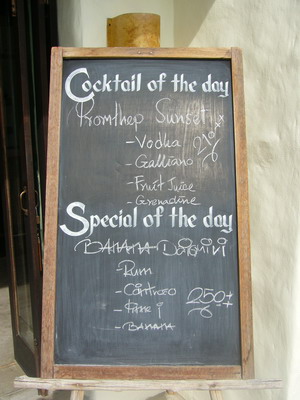 Cocktail of the day
Promthep Sunset
- Vodka 210
- Galliano
- Fruit Juice
- Grenadine
Special of the day
BANANA Daiquiri
- Rum
- Cointreao 250
- BANANA